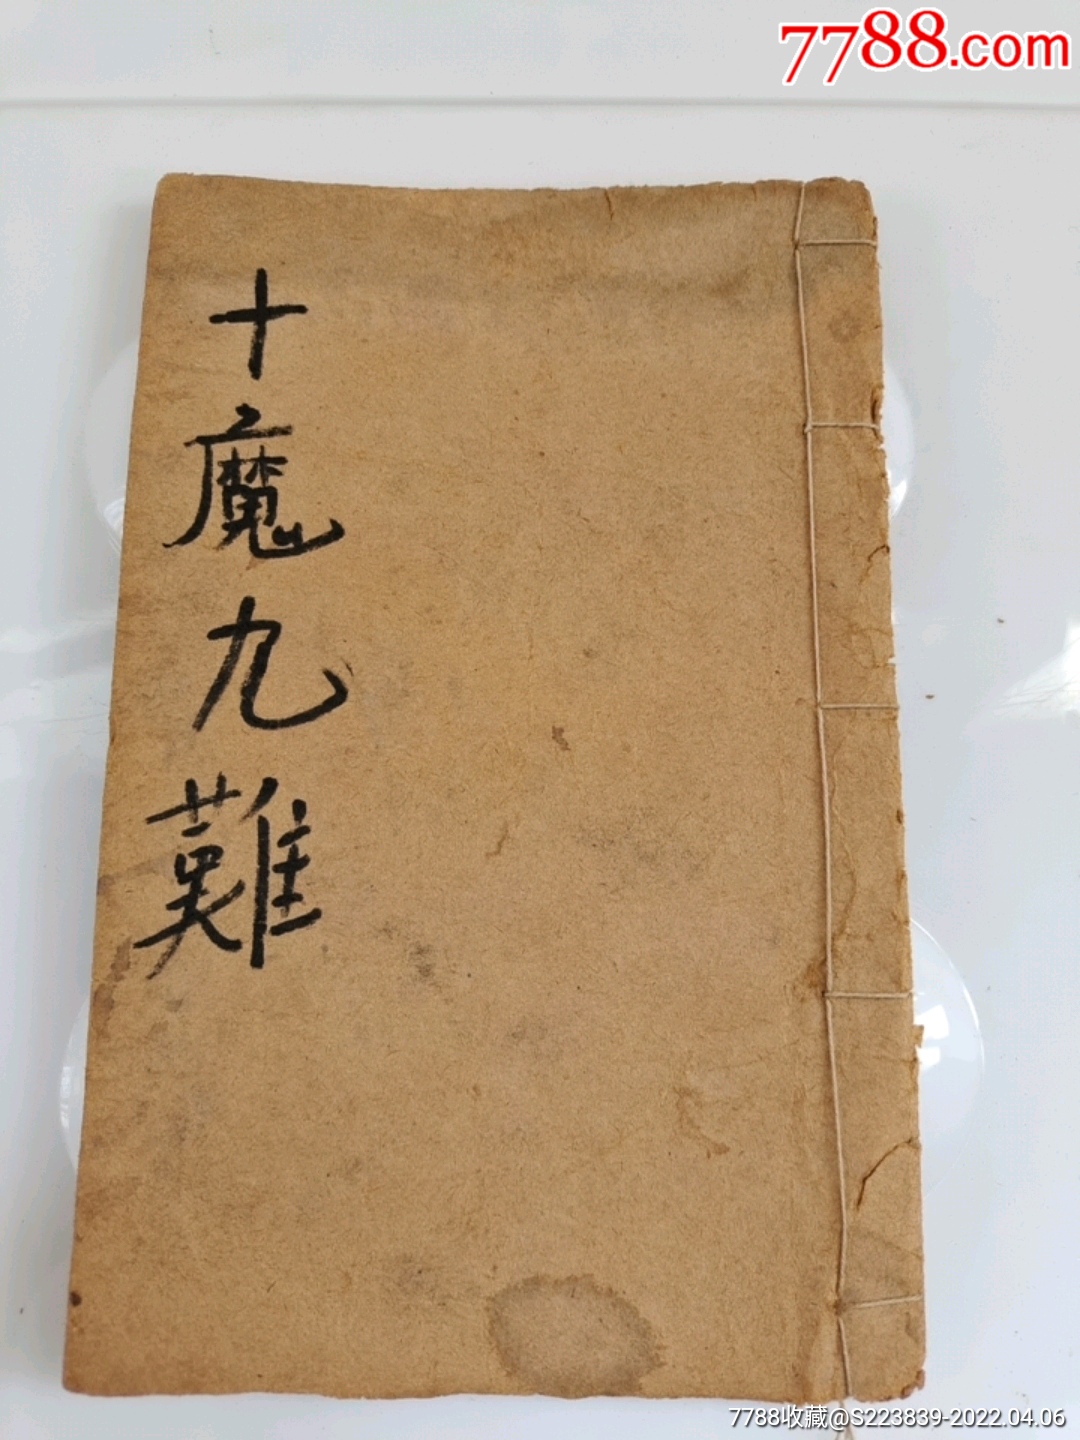 7788.com
十魔九難
7788收藏@S223839-2022.04.06